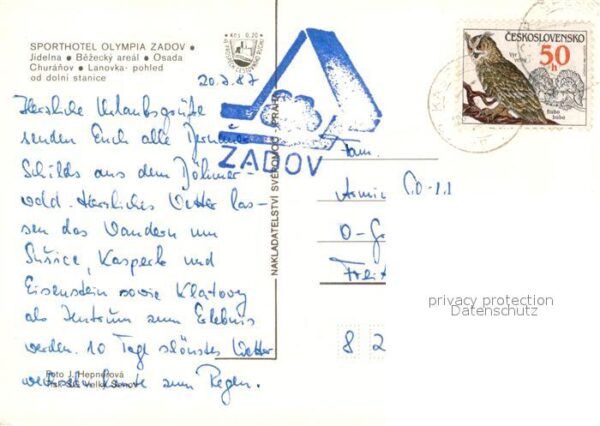 SPORTHOTEL OLYMPIA ZADOV •
Jídelna • Běžecký areál • Osada
Churáňov • Lanovka- pohled
od dolní stanice
Kčs 0,20
20.7.87
Herzliche Urlaubsgrüße
senden Euch alle
Schilds aus dem Böhmer-
wald. Herrliches Wetter las-
sen das Wandern um
Sušice, Kasperk und
Eisenstein sowie Klatovy
als Zentrum zum Erlebnis
werden. 10 Tage schönstes Wetter
heute zum Regen.
Foto J. Hepnerová
Velký Šenov
NAKLADATELSTVÍ SVĚPOMOC - PRAHA
ZADOV
ČESKOSLOVENSKO
50 h
Výr velký
Bubo
bubo
Fam.
Armin
O-
8 2
privacy protection
Datenschutz